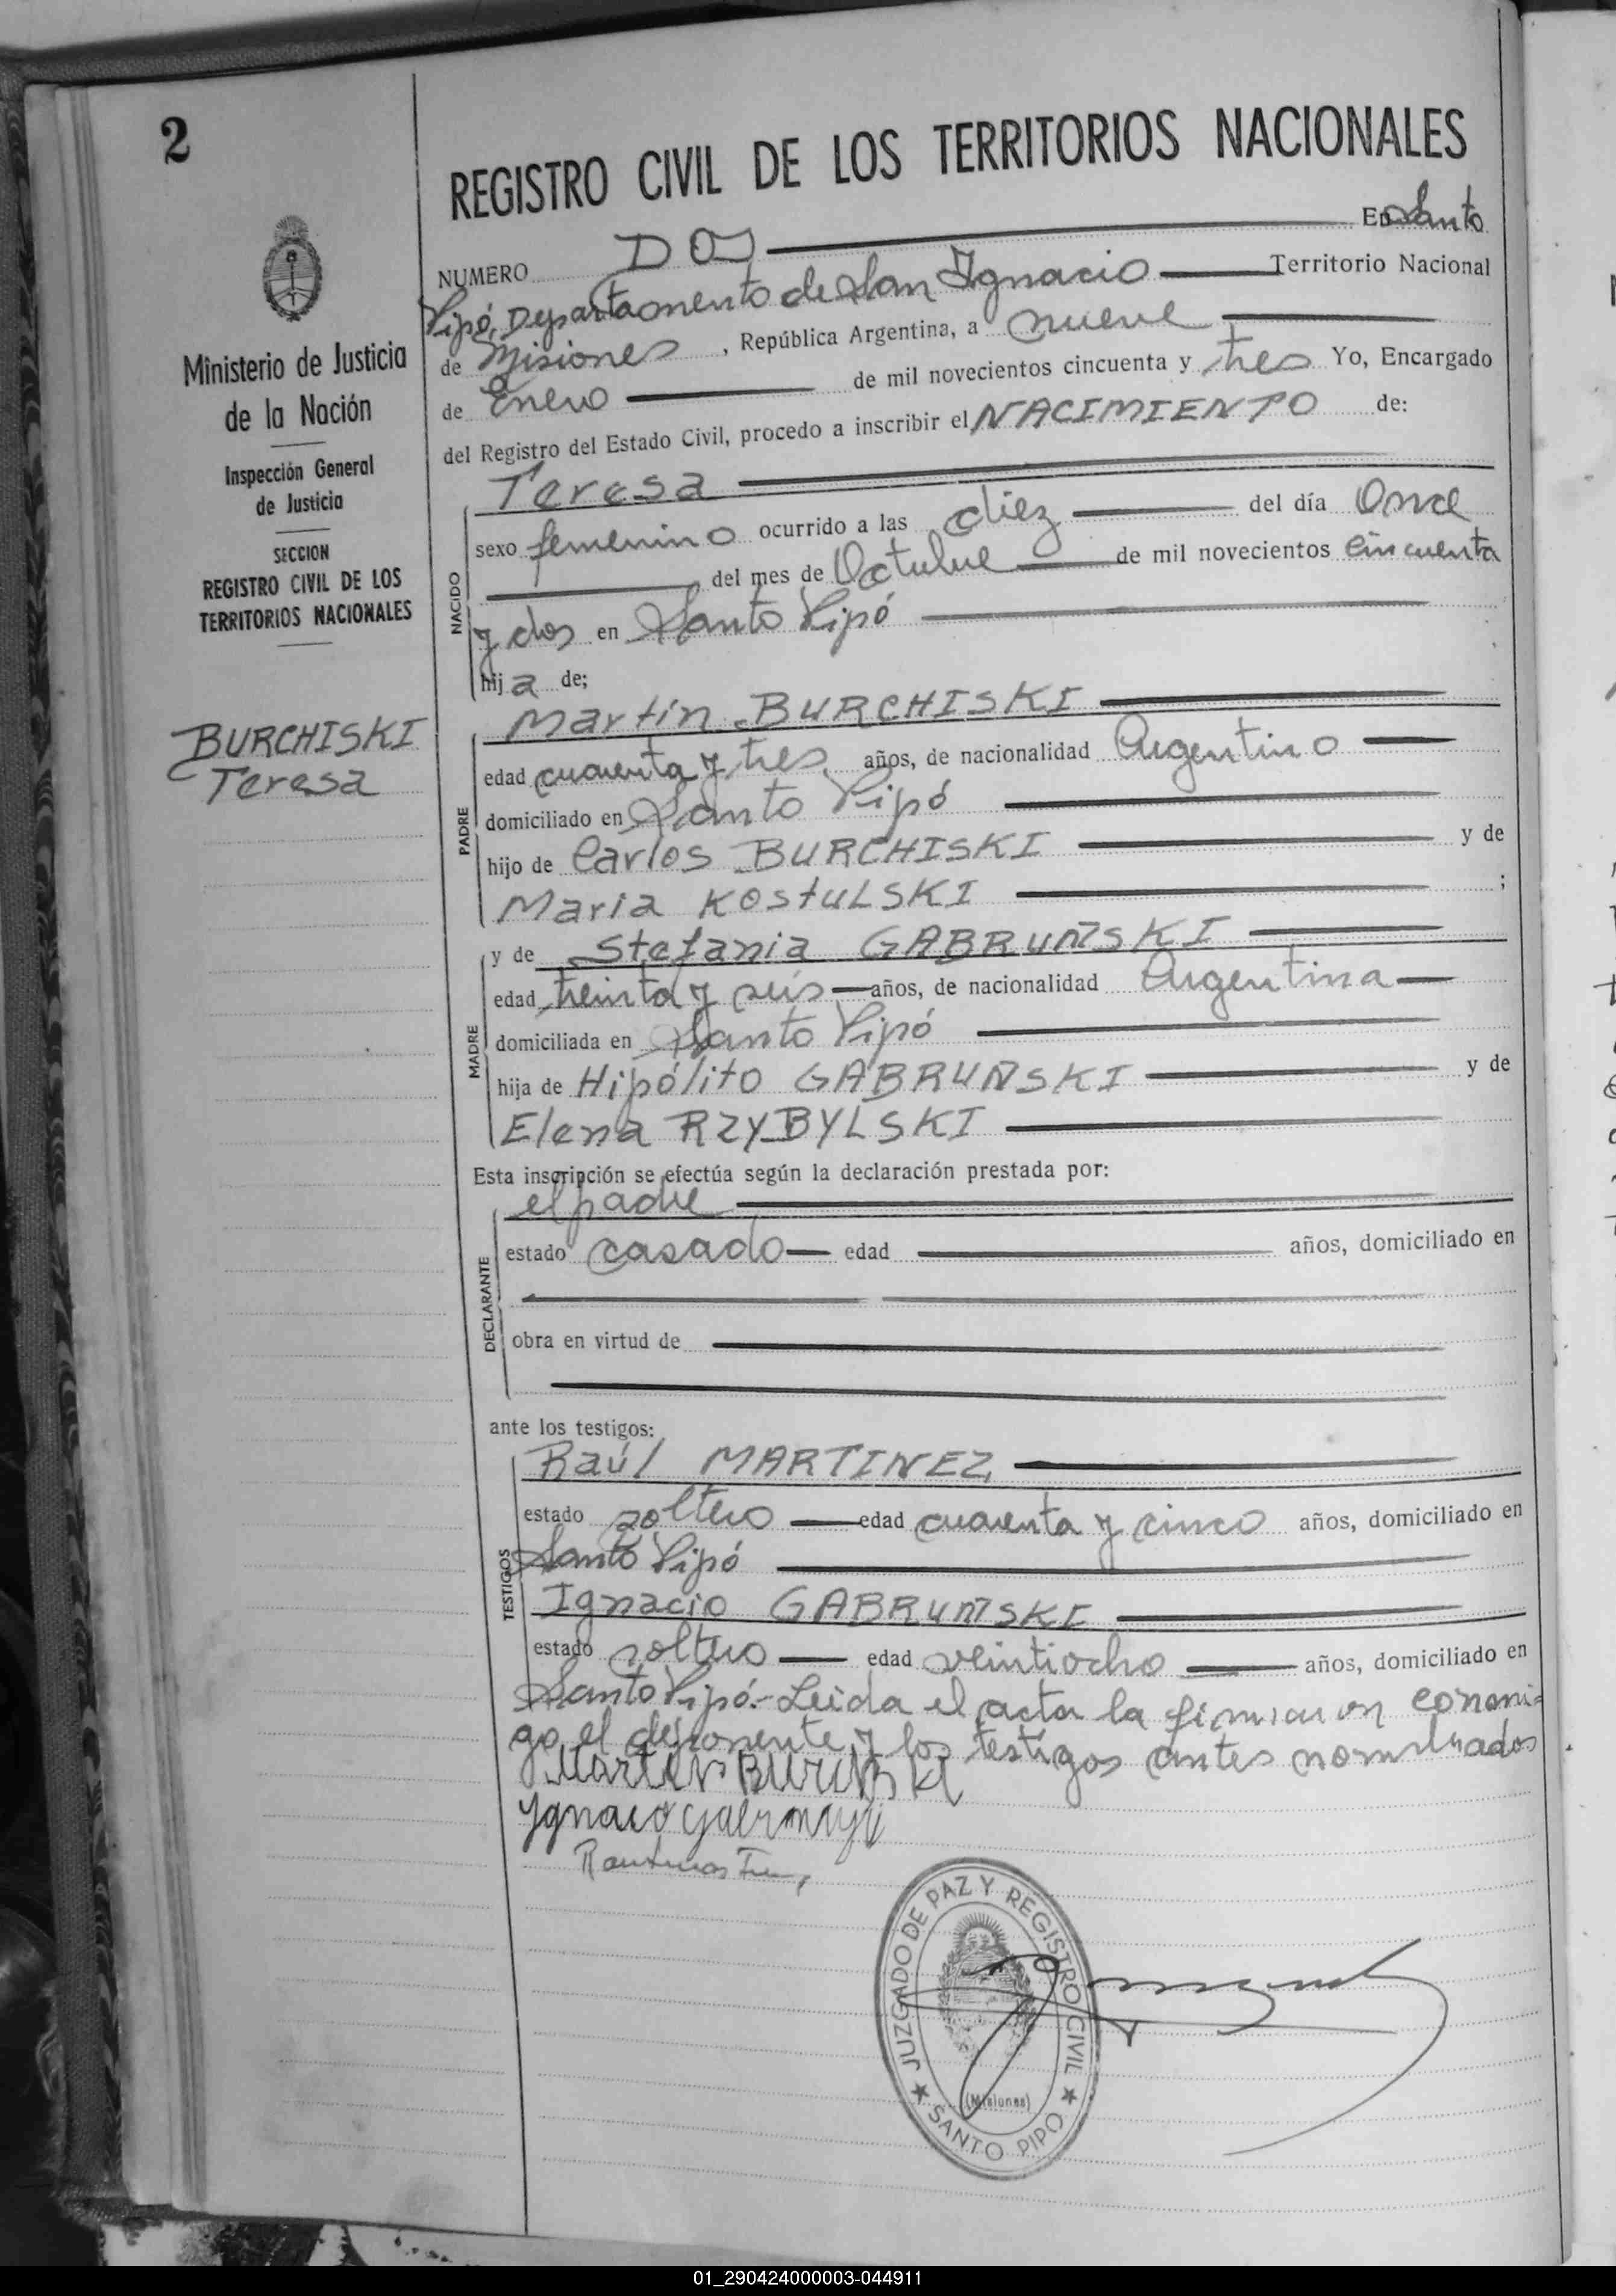 2
Ministerio de Justicia
de la Nación
Inspección General
de Justicia
SECCION
REGISTRO CIVIL DE LOS
TERRITORIOS NACIONALES
BURCHISKI
Teresa
REGISTRO CIVIL DE LOS TERRITORIOS NACIONALES
NUMERO DOS En Santo
Pipó, Departamento de San Ignacio Territorio Nacional
de Misiones, República Argentina, a nueve
de Enero de mil novecientos cincuenta y tres Yo, Encargado
del Registro del Estado Civil, procedo a inscribir el NACIMIENTO de:
NACIDO
Teresa
sexo femenino ocurrido a las diez del día Once
del mes de Octubre de mil novecientos cincuenta
y dos en Santo Pipó
hija de;
PADRE
Martín BURCHISKI
edad cuarenta y tres años, de nacionalidad Argentino
domiciliado en Santo Pipó
hijo de Carlos BURCHISKI y de
Maria KOStULSKI ;
MADRE
y de Stefania GABRUÑSKI
edad treinta y seis años, de nacionalidad Argentina
domiciliada en Santo Pipó
hija de Hipólito GABRUÑSKI y de
Elena RZYBYLSKI
Esta inscripción se efectúa según la declaración prestada por:
DECLARANTE
el padre
estado casado edad años, domiciliado en
obra en virtud de
ante los testigos:
TESTIGOS
Raúl MARTINEZ
estado soltero edad cuarenta y cinco años, domiciliado en
Santo Pipó
Ignacio GABRUÑSKI
estado soltero edad veintiocho años, domiciliado en
Santo Pipó.- Leida el acta la firmaron conmi-
go el deponente y los testigos antes nombrados
Martin
Ygnacio
JUZGADO DE PAZ Y REGISTRO CIVIL
(Misiones)
SANTO PIPO
01_290424000003-044911